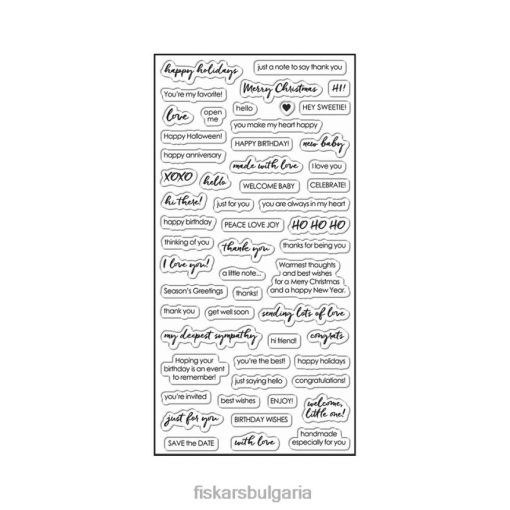 happy holidays
just a note to say thank you
Merry Christmas
HI!
You're my favorite!
hello
HEY SWEETIE!
love
open
me
you make my heart happy
Happy Halloween!
HAPPY BIRTHDAY!
new baby
happy anniversary
made with love
I love you
XOXO
hello
WELCOME BABY
CELEBRATE!
hi there!
just for you
you are always in my heart
happy birthday
PEACE LOVE JOY
HO HO HO
thinking of you
thank you
thanks for being you
I love you!
a little note...
Warmest thoughts
and best wishes
for a Merry Christmas
and a happy New Year.
Season's Greetings
thanks!
thank you
get well soon
sending lots of love
my deepest sympathy
hi friend!
congrats
Hoping your
birthday is an event
to remember!
you're the best!
happy holidays
just saying hello
congratulations!
you're invited
best wishes
ENJOY!
welcome,
little one!
just for you
BIRTHDAY WISHES
SAVE the DATE
with love
handmade
especially for you
fiskarsbulgaria